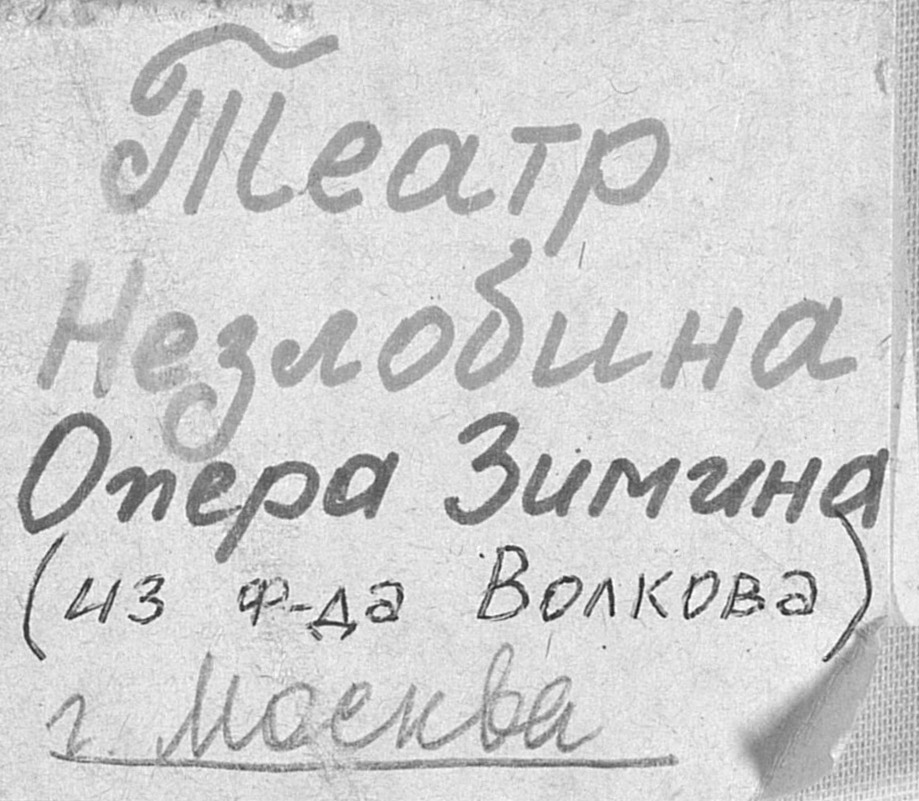 Театр
Незлобина
Опера Зимина
(из ф-да Волкова)
г. Москва